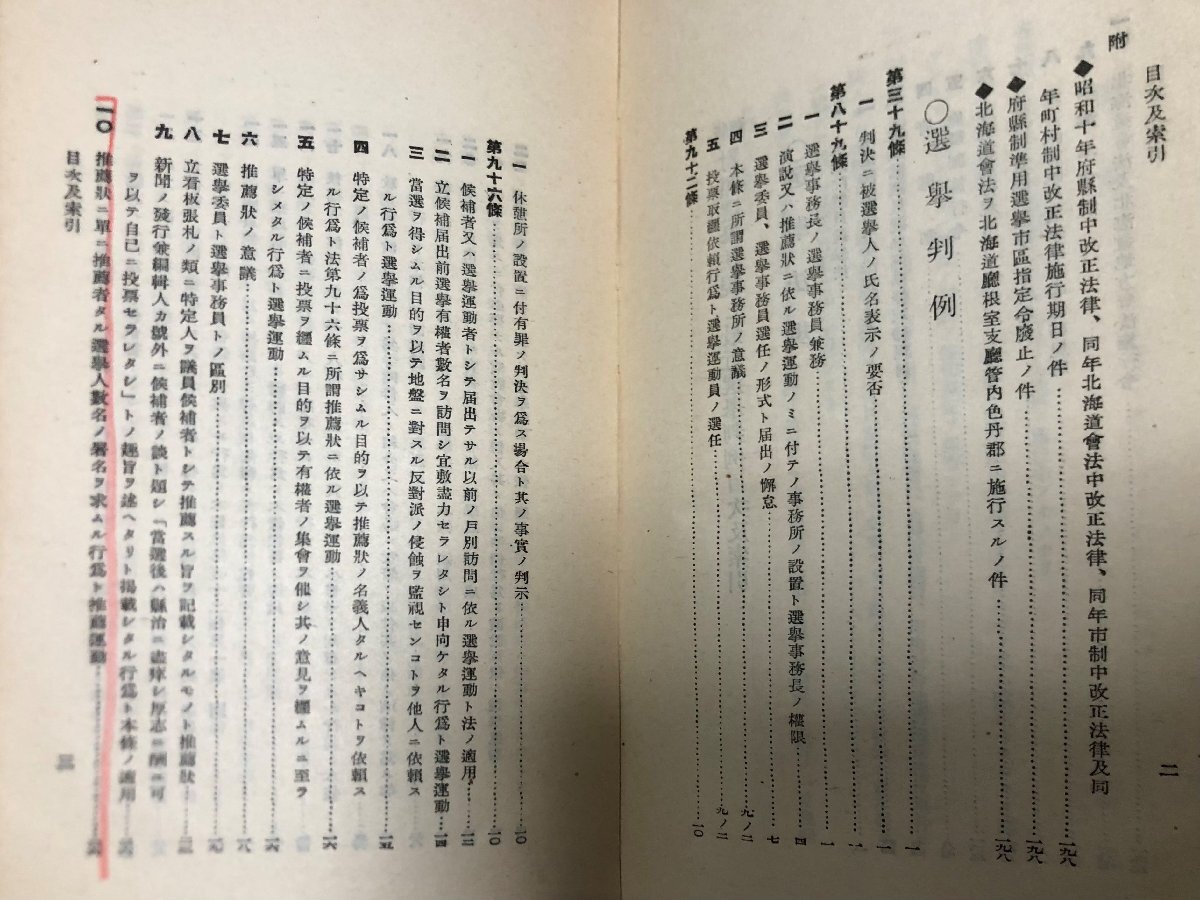 目次及索引
二
一附
◆昭和十年府縣制中改正法律、同年北海道會法中改正法律、同年市制中改正法律及同
年町村制中改正法律施行期日ノ件…………一九八
◆府縣制準用選擧市區指定令廢止ノ件…………一九八
◆北海道會法ヲ北海道廳根室支廳管内色丹郡ニ施行スルノ件…………一九八
○選擧判例
第三十九條…………一
一 判決ニ被選擧人ノ氏名表示ノ要否…………一
第八十九條…………一
一 選擧事務長ノ選擧事務員兼務…………一
二 演説又ハ推薦狀ニ依ル選擧運動ノミニ付テノ事務所ノ設置ト選擧事務長ノ權限…………四
三 選擧委員、選擧事務員選任ノ形式ト届出ノ懈怠…………七
四 本條ニ所謂選擧事務所ノ意議…………九ノ二
五 投票取纒依賴行爲ト選擧運動員ノ選任…………九ノ二
第九十二條…………一〇
一 休憩所ノ設置ニ付有罪ノ判決ヲ爲ス場合ト其ノ事實ノ判示…………一〇
第九十六條…………一〇
一 候補者又ハ選擧運動者トシテ届出テサル以前ノ戸別訪問ニ依ル選擧運動ト法ノ適用…………一三
二 立候補届出前選擧有權者數名ヲ訪問シ宜敷盡力セラレタシト申向ケタル行爲ト選擧運動…………一四
三 當選ヲ得シムル目的ヲ以テ地盤ニ對スル反對派ノ侵蝕ヲ監視センコトヲ他人ニ依賴ス
ル行爲ト選擧運動…………一五
四 特定ノ候補者ノ爲投票ヲ爲サシムル目的ヲ以テ推薦狀ノ名義人タルヘキコトヲ依賴ス
ル行爲ト法第九十六條ニ所謂推薦狀ニ依ル選擧運動…………一六
五 特定ノ候補者ニ投票ヲ纒ムル目的ヲ以テ有權者ノ集會ヲ催シ其ノ意見ヲ纒ムルニ至ラ
シメタル行爲ト選擧運動…………一六
六 推薦狀ノ意議…………一八
七 選擧委員ト選擧事務員トノ區別…………一九
八 立看板張札ノ類ニ特定人ヲ議員候補者トシテ推薦スル旨ヲ記載シタルモノト推薦狀…………
九 新聞ノ發行兼編輯人カ號外ニ候補者ノ談ト題シ「當選後ハ縣治ニ盡瘁シ厚志ニ酬ユ可
ヲ以テ自己ニ投票セラレタシ」トノ趣旨ヲ述ヘタリト掲載シタル行爲ト本條ノ適用…………
一〇 推薦狀ニ單ニ推薦者タル選擧人數名ノ署名ヲ求ムル行爲ト推薦運動…………
目次及索引
三